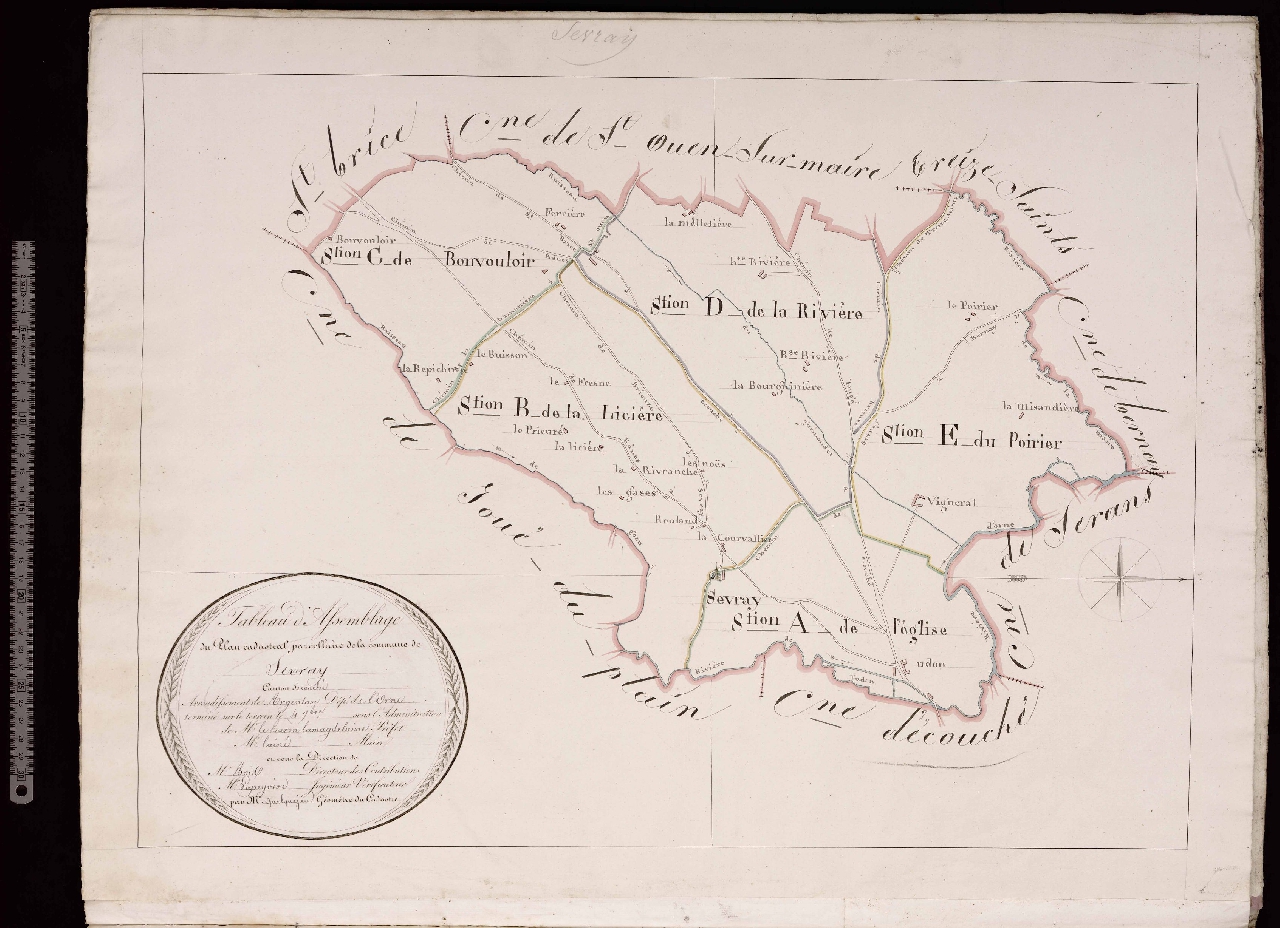 Sevray
St. brice
Cne de St. Ouen Sur maire
treize Saints
Cne de bernay
Cne de Serans
Cne d'écouché
Cne de Joué du plain
Bonvouloir
Stion C de Bonvouloir
Ferrière
la milletière
hte Rivière
Stion D de la Rivière
le Poirier
Bsse Rivière
la Bourdinière
la Repichère
le Buisson
le Fresne
Stion B de la Licière
le Prieuré
la licière
la Misandière
Stion E du Poirier
les noës
la Rivranche
les gases
Vigneral
Rouland
la Courvallière
d'orne
Sevray
Stion A de l'église
udon
Rivière
Tableau d'Assemblage
du Plan cadastral parcellaire de la commune de
Sevray
Canton d'écouché
Arrondissement de Argentan Dépt. de l'Orne
terminé sur le terrain le sous l'Administration
de Mr. Lamagdelaine Préfet
Mr. Maire
et sous la Direction de
Mr. Directeur des Contributions
Mr. Ingénieur Vérificateur
par Mr. Géomètre du Cadastre